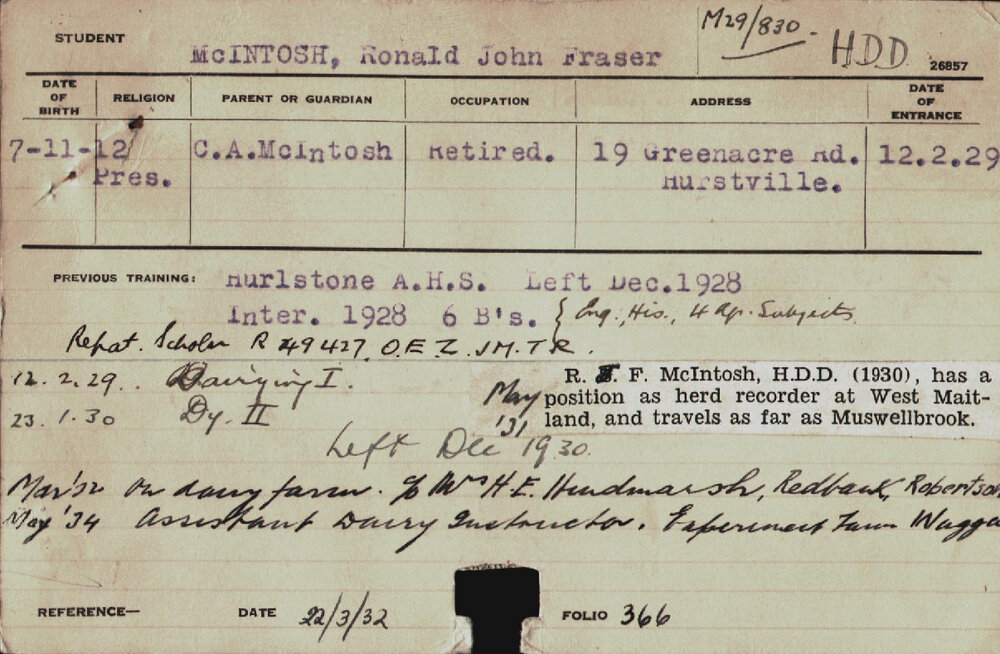 M29/830.
H.D.D.
26857
STUDENT
McINTOSH, Ronald John Fraser
DATE OF BIRTH
RELIGION
PARENT OR GUARDIAN
OCCUPATION
ADDRESS
DATE OF ENTRANCE
7-11-12
Pres.
C.A.McIntosh
Retired.
19 Greenacre Rd.
Hurstville.
12.2.29
PREVIOUS TRAINING: Hurlstone A.H.S. Left Dec.1928
Inter. 1928 6 B's. { Eng., His., 4 Ag. Subjects
Repat. Scholar R 49427.
12.2.29. Dairying I.
23.1.30 Dy. II
Left Dec 1930.
May '31
R. J. F. McIntosh, H.D.D. (1930), has a
position as herd recorder at West Mait-
land, and travels as far as Muswellbrook.
Mar '32 On dairy farm. c/o Mrs H.E. Hindmarsh, Redbank, Robertson
May '34 Assistant Dairy Instructor. Experiment Farm Wagga
REFERENCE— DATE 22/3/32 FOLIO 366